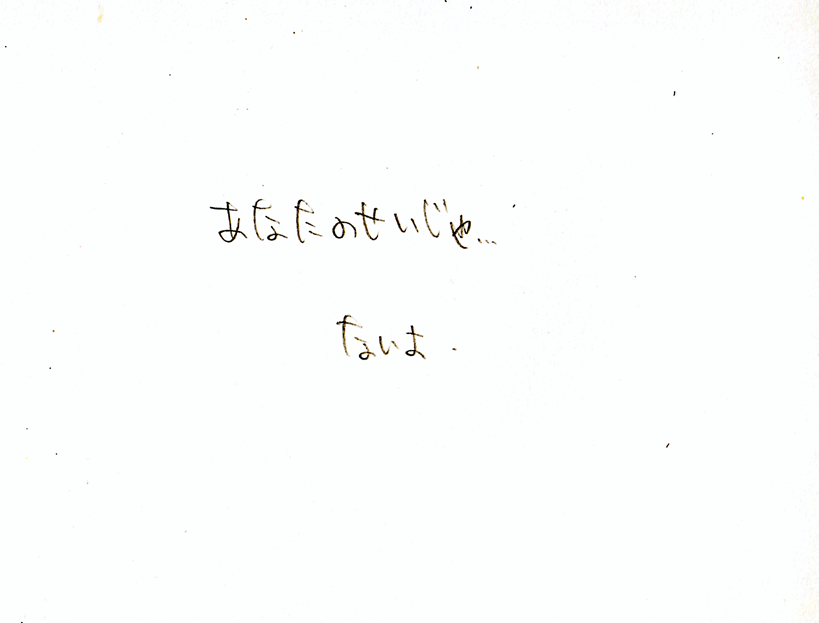 あなたのせいじゃ…
ないよ.